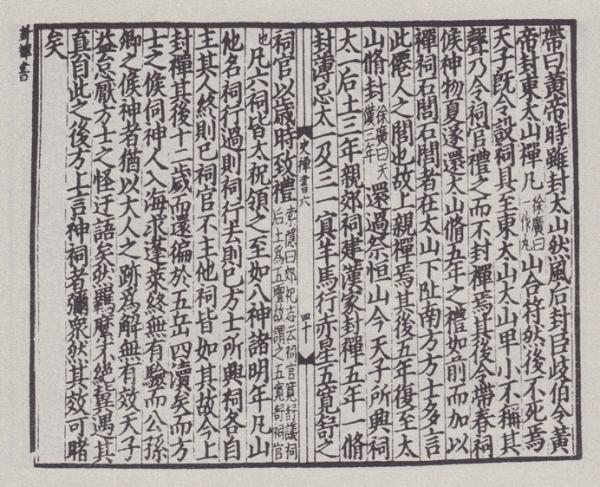 帶曰黃帝時雖封太山然風后封巨歧伯令黃
帝封東太山禪凡徐廣曰一作丸山合符然後不死焉
天子旣令設祠具至東太山太山卑小不稱其
聲乃令祠官禮之而不封禪焉其後令帶奉祠
候神物夏遂還太山脩五年之禮如前而加以
禪祠石閭石閭者在太山下阯南方方士多言
此僊人之閭也故上親禪焉其後五年復至太
山脩封徐廣曰天漢三年還過祭恒山今天子所興祠
太一后土三年親郊祠建漢家封禪五年一脩
封薄忌太一及三一冥羊馬行赤星五寬舒之
史禪書六
四十
祠官以歲時致禮索隱曰郊祀志云祠官寬舒議祠后土爲五壇故謂之五寬舒祠官
也凡六祠皆太祝領之至如八神諸明年凡山
他名祠行過則祠行去則已方士所興祠各自
主其人終則已祠官不主他祠皆如其故今上
封禪其後十二歲而還徧於五岳四瀆矣而方
士之候伺神人入海求蓬萊終無有驗而公孫
卿之候神者猶以大人之跡爲解無有效天子
益怠厭方士之怪迂語矣然羈縻不絕冀遇其
真自此之後方士言神祠者彌衆然其效可睹
矣
封禪書